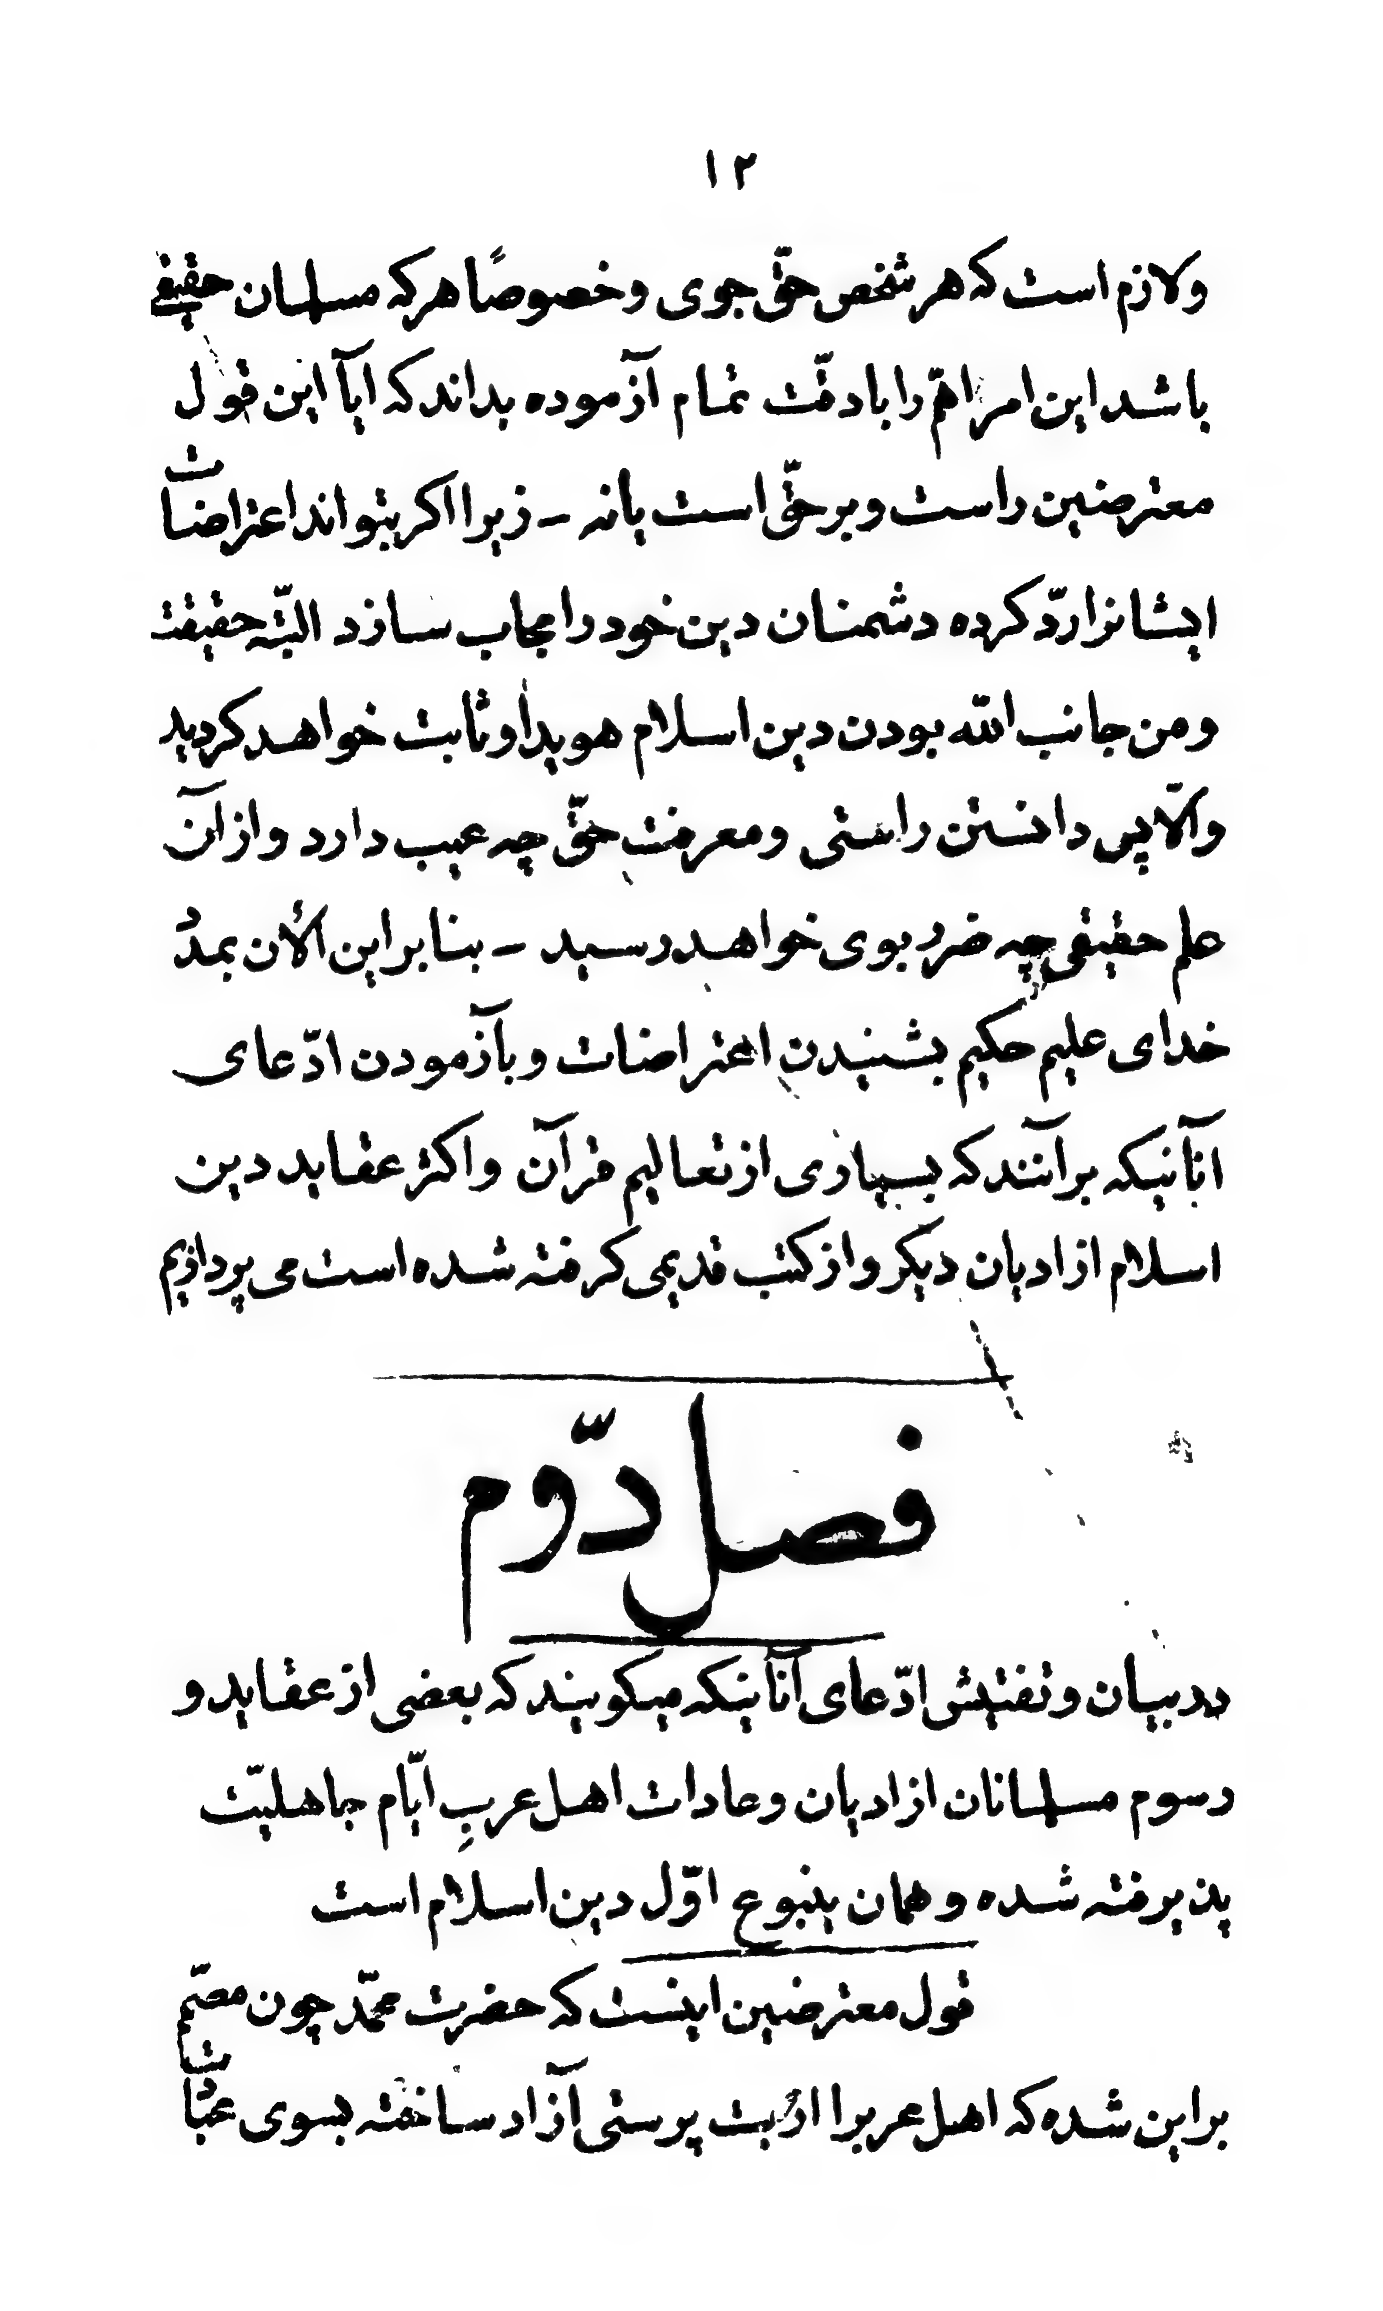 ۱۲
ولازم است که هر شخص حقّ جوی وخصوصًا هرکه مسلمان حقیقی
باشد این امر اهمّ را با دقّت تمام آزموده بداند که ایا این قول
معترضین راست و بر حقّ است یا نه - زیرا اکر بتواند اعتراضات
ایشانرا ردّ کرده دشمنان دین خود را مجاب سازد البتّه حقیقت
و من جانب الله بودن دین اسلام هویدا و ثابت خواهد کردید
والّا پس دانستن راستی و معرفت حقّ چه عیب دارد و از آن
علم حقیقی چه ضرر بوی خواهد رسید - بنا براین الأن بمدد
خدای علیم حکیم بشنیدن اعتراضات و بآزمودن ادّعای
آنانیکه برآنند که بسیاری از تعالیم قرآن و اکثر عقاید دین
اسلام از ادیان دیکر و از کتب قدیمی کرفته شده است می پردازیم
فصل دوّم
در بیان و تفتیش ادّعای آنانیکه میکویند که بعضی از عقاید و
رسوم مسلمانان از ادیان و عادات اهل عربِ ایّام جاهلیّت
پذیرفته شده و همان ینبوع اوّل دین اسلام است
قول معترضین اینست که حضرت محمّد چون مصمّم
بر این شده که اهل عربرا از بت پرستی آزاد ساخته بسوی